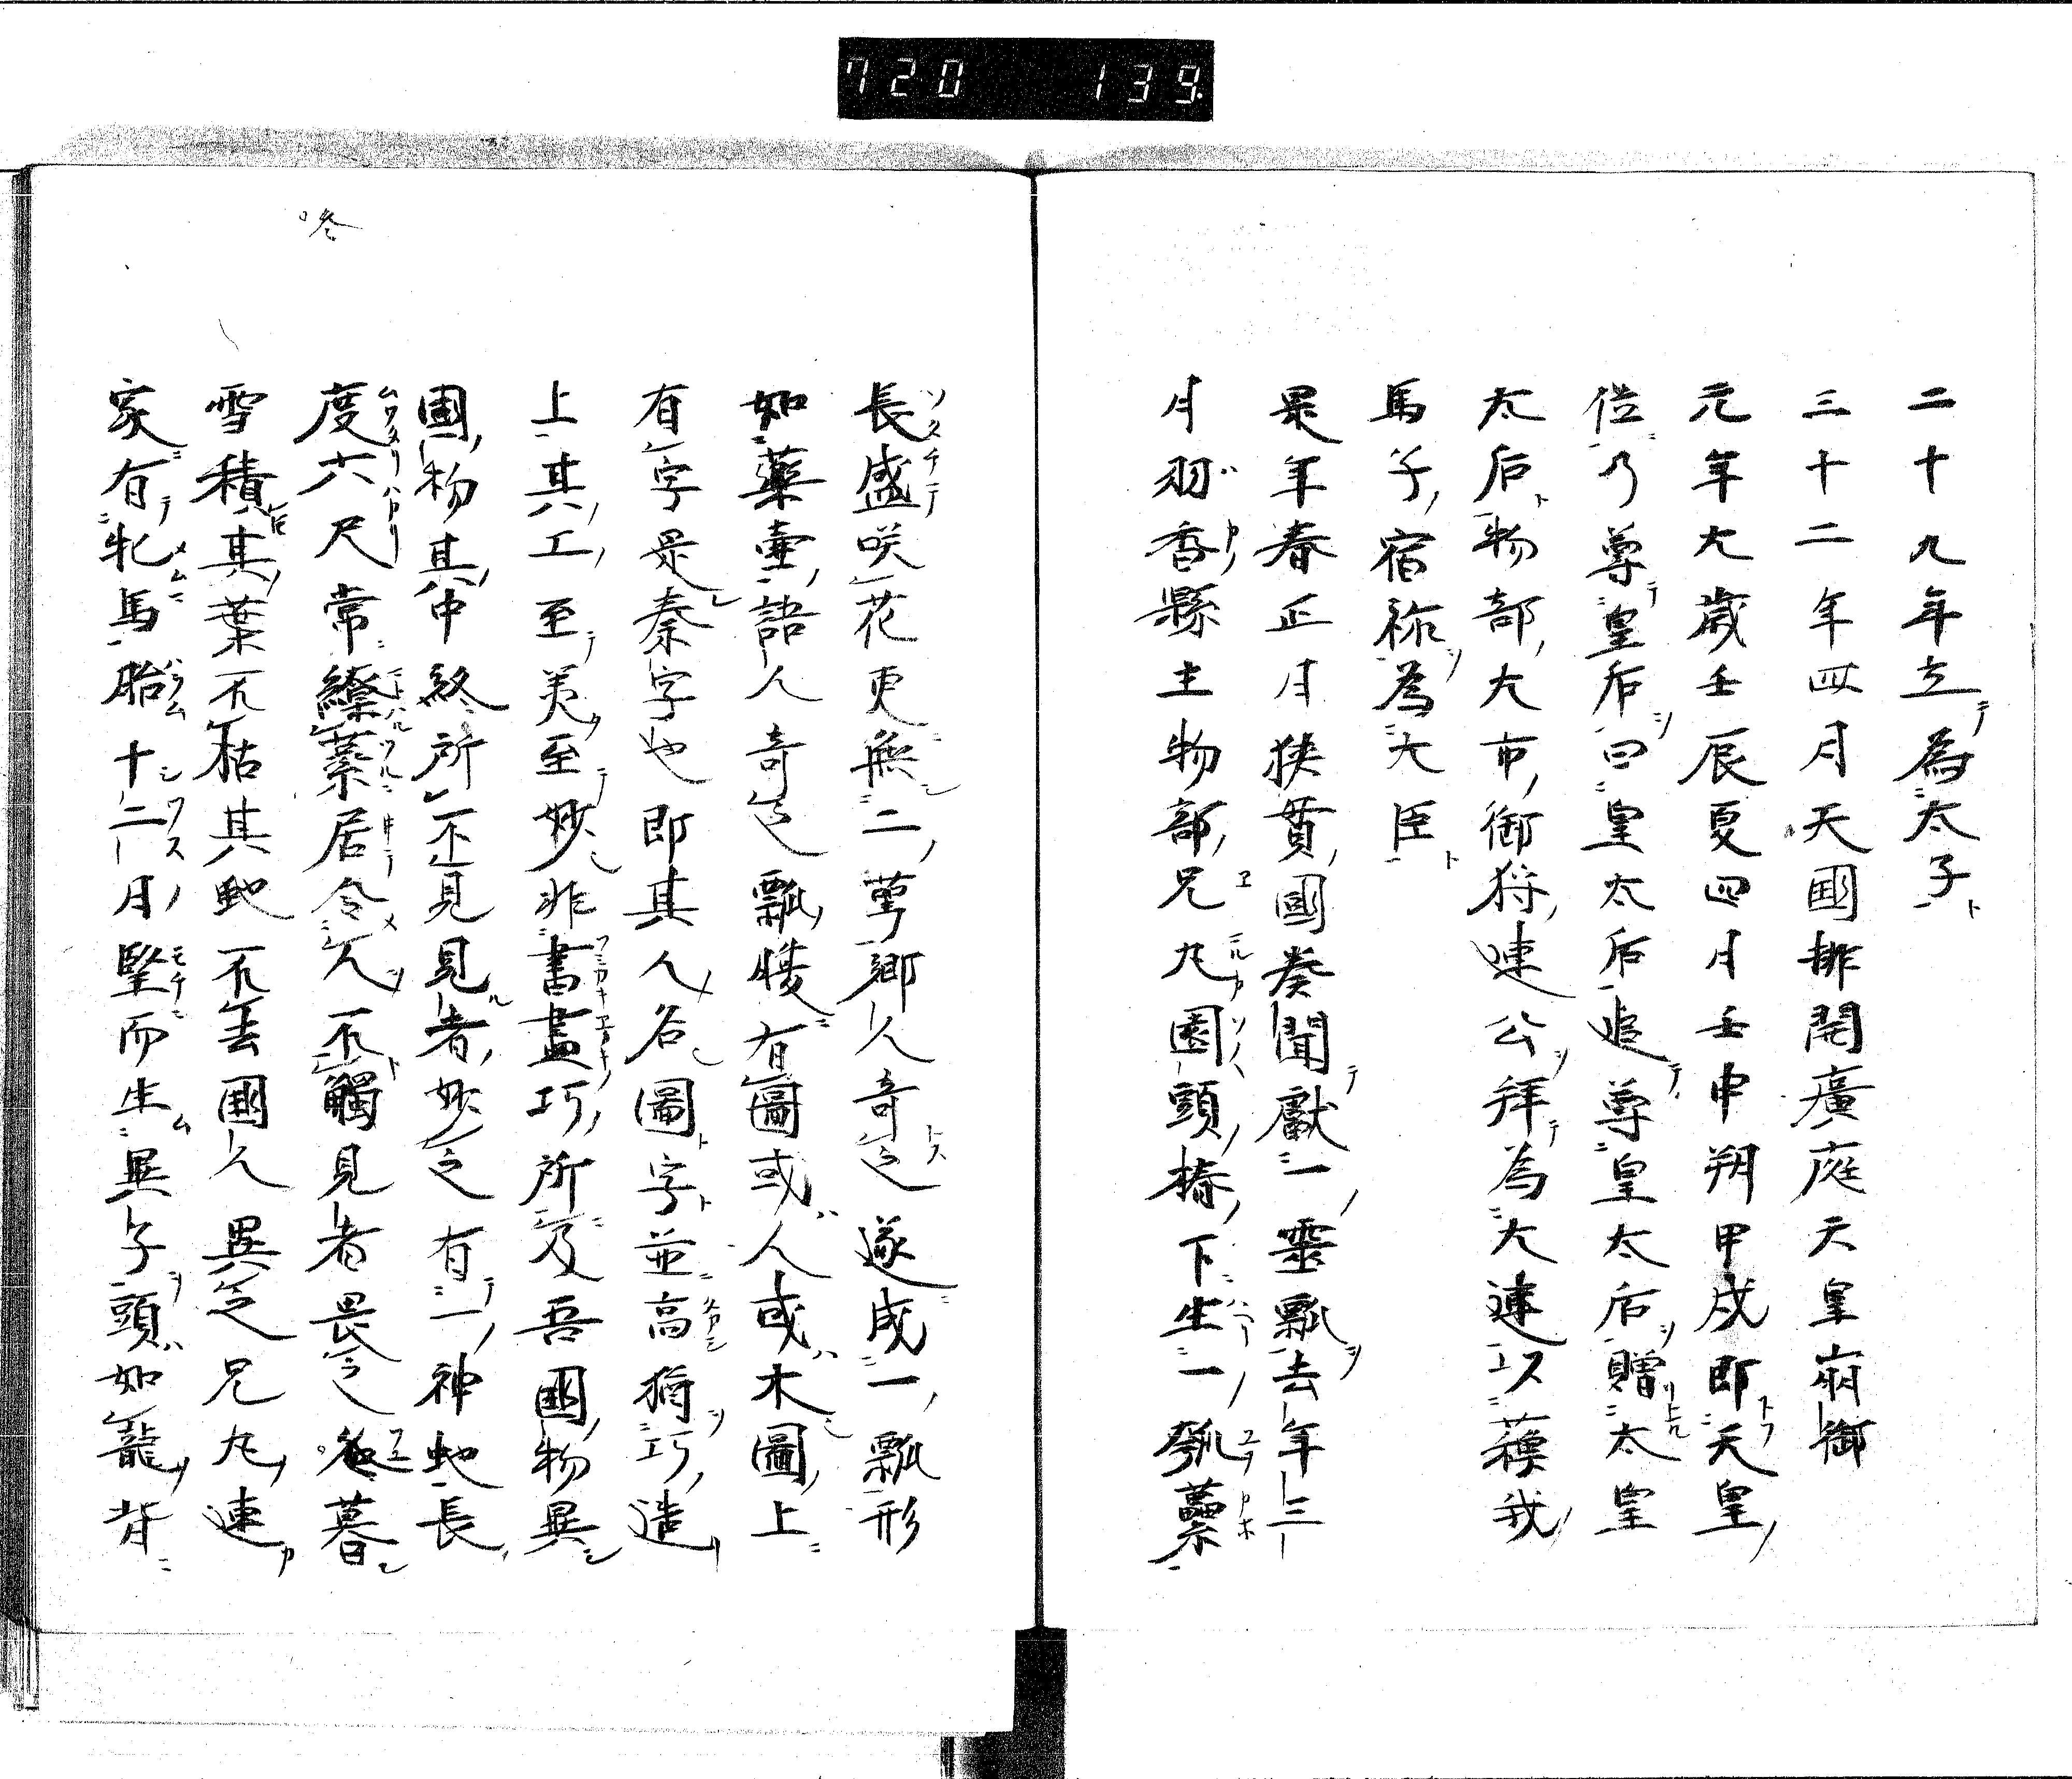 720 139
二十九年立為太子
三十二年四月天國排開廣庭天皇崩御
元年大歳壬辰夏四月壬申朔甲戌即天皇
位乃尊皇后曰皇太后追尊皇太后贈太皇
太后物部大市御狩連公拜為大連以蘓我
馬子宿祢為大臣
是年春正月狭貫國奏聞獻一霊瓢去年三
月羽香縣主物部兄丸園頭椿下生一瓠蘽
長盛咲花更無二萼郷人奇之遂成一瓢形
如藥壷語人奇之瓢腰有圖或人或木圖上
有字是秦字也即其人名圖字並高猶巧造
上其工至美至妙非書畫巧所及吾國物異
國物其中終所不見見者妙之有一神虵長
度六尺常繚蘽居令人不觸見者畏之冬暮
雪積其葉不枯其虵不去國人異之兄丸連
家有牝馬胎十二月堅而生異子頭如龍背
咚